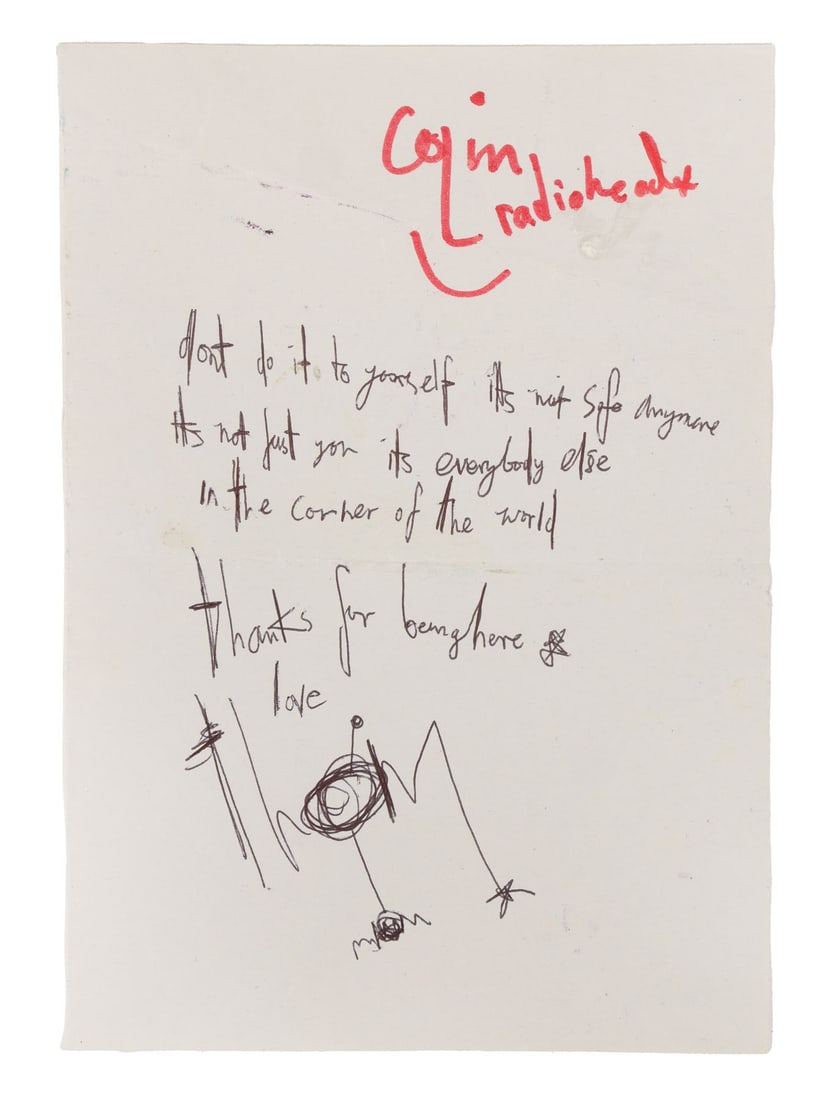 Colin
radiohead x
dont do it to yourself its not safe anymore
its not just you its everybody else
in the corner of the world
thanks for being here
love
thom